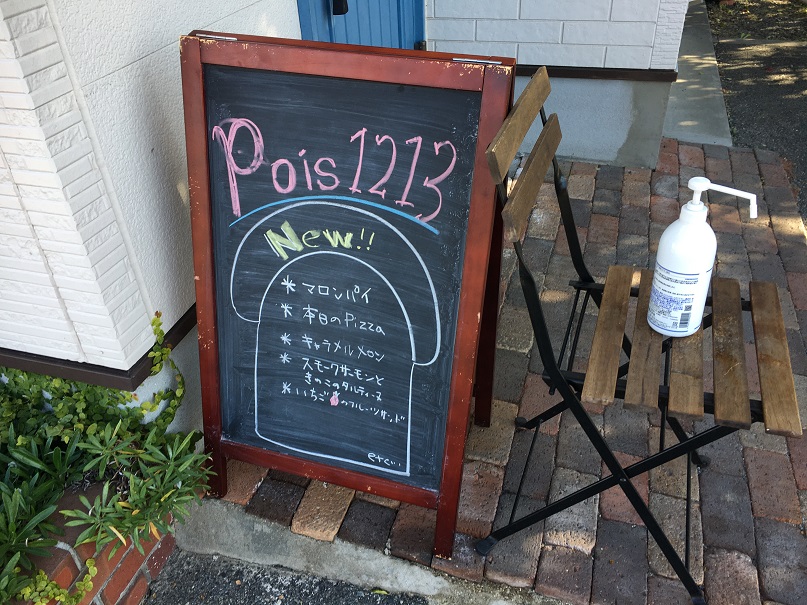 Pois 1213
New!!
* マロンパイ
* 本日のPizza
* キャラメルメロン
* スモークサーモンと
きのこのタルティーヌ
* いちごのフルーツサンド
etc…